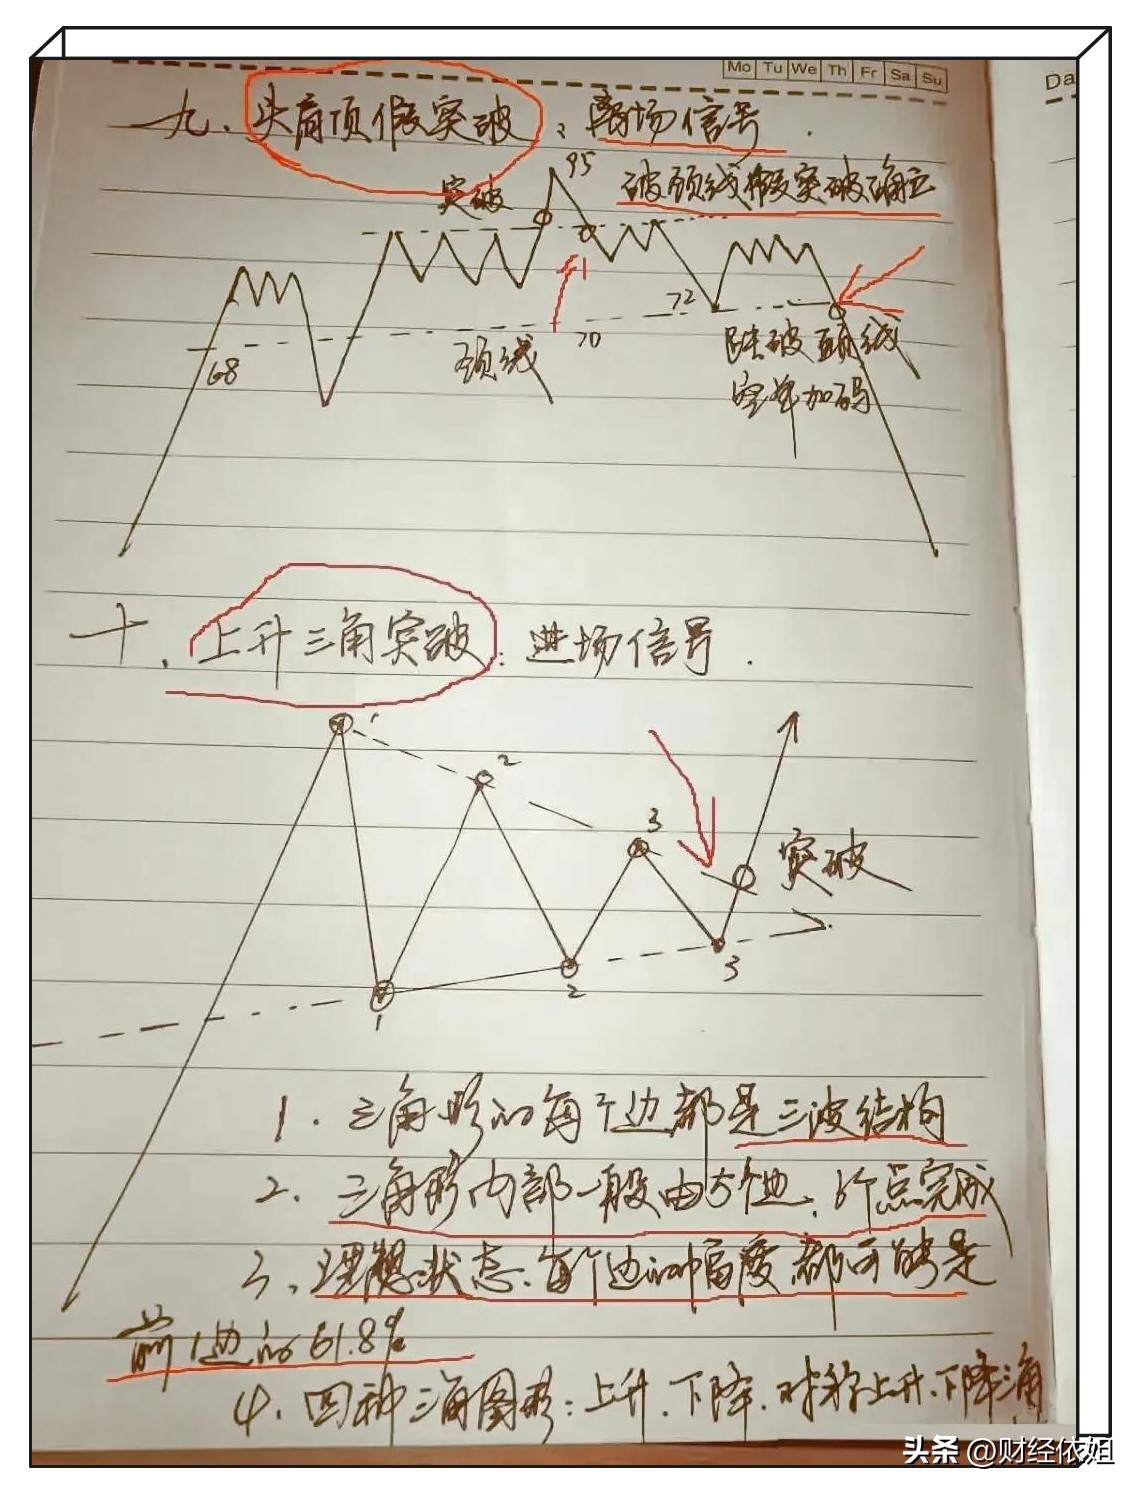 Mo Tu We Th Fr Sa Su
Da
九、头肩顶假突破：离场信号.
突破
95
破颈线假突破确立
72
68
颈线
70
跌破颈线
空单加码
十、上升三角突破：进场信号.
1
2
3
突破
1
2
3
1. 三角形的每个边都是三波结构
2. 三角形内部一般由5个边、6个点完成
3、理想状态、每个边的幅度都可能是
前1边的61.8%
4、四种三角图形：上升、下降、对称上升、下降三角
头条 @财经依姐